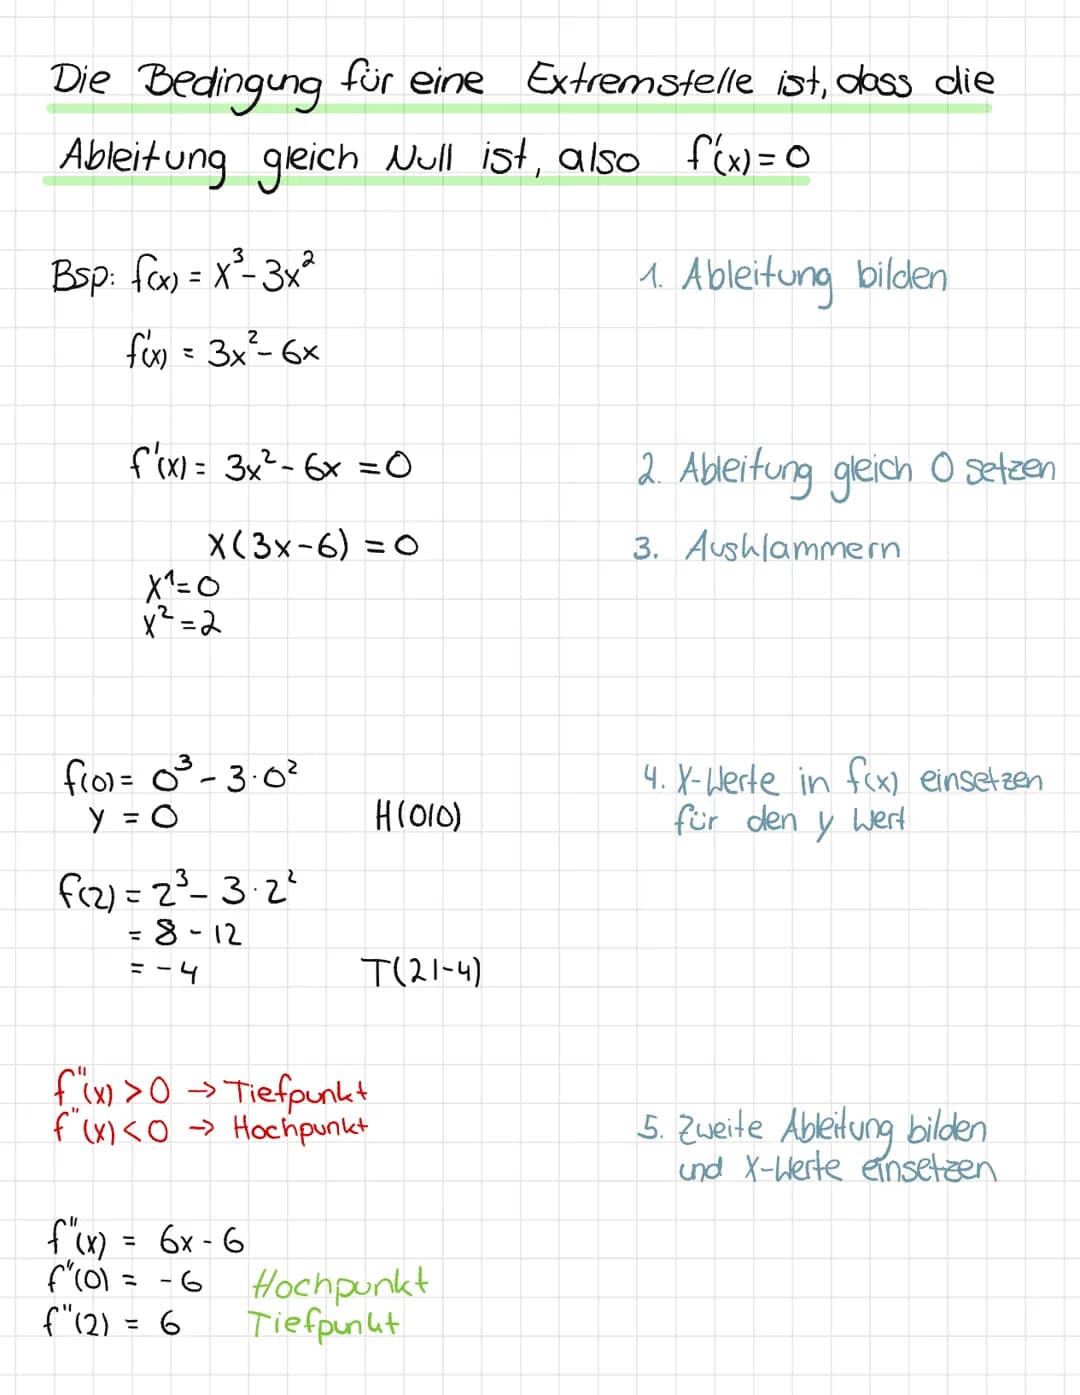 Die Bedingung für eine Extremstelle ist, dass die
Ableitung gleich Null ist, also f'(x) = 0
Bsp: f(x) = x³ - 3x²
1. Ableitung bilden
f'(x) = 3x² - 6x
f'(x) = 3x² - 6x = 0
2. Ableitung gleich 0 setzen
x(3x-6) = 0
3. Ausklammern
x¹ = 0
x² = 2
f(0) = 0³ - 3·0²
4. X-Werte in f(x) einsetzen
y = 0
H(0|0)
für den y Wert
f(2) = 2³ - 3·2²
= 8 - 12
= -4
T(2|-4)
f"(x) > 0 → Tiefpunkt
f"(x) < 0 → Hochpunkt
5. Zweite Ableitung bilden
und X-Werte einsetzen
f"(x) = 6x - 6
f"(0) = -6 Hochpunkt
f"(2) = 6 Tiefpunkt